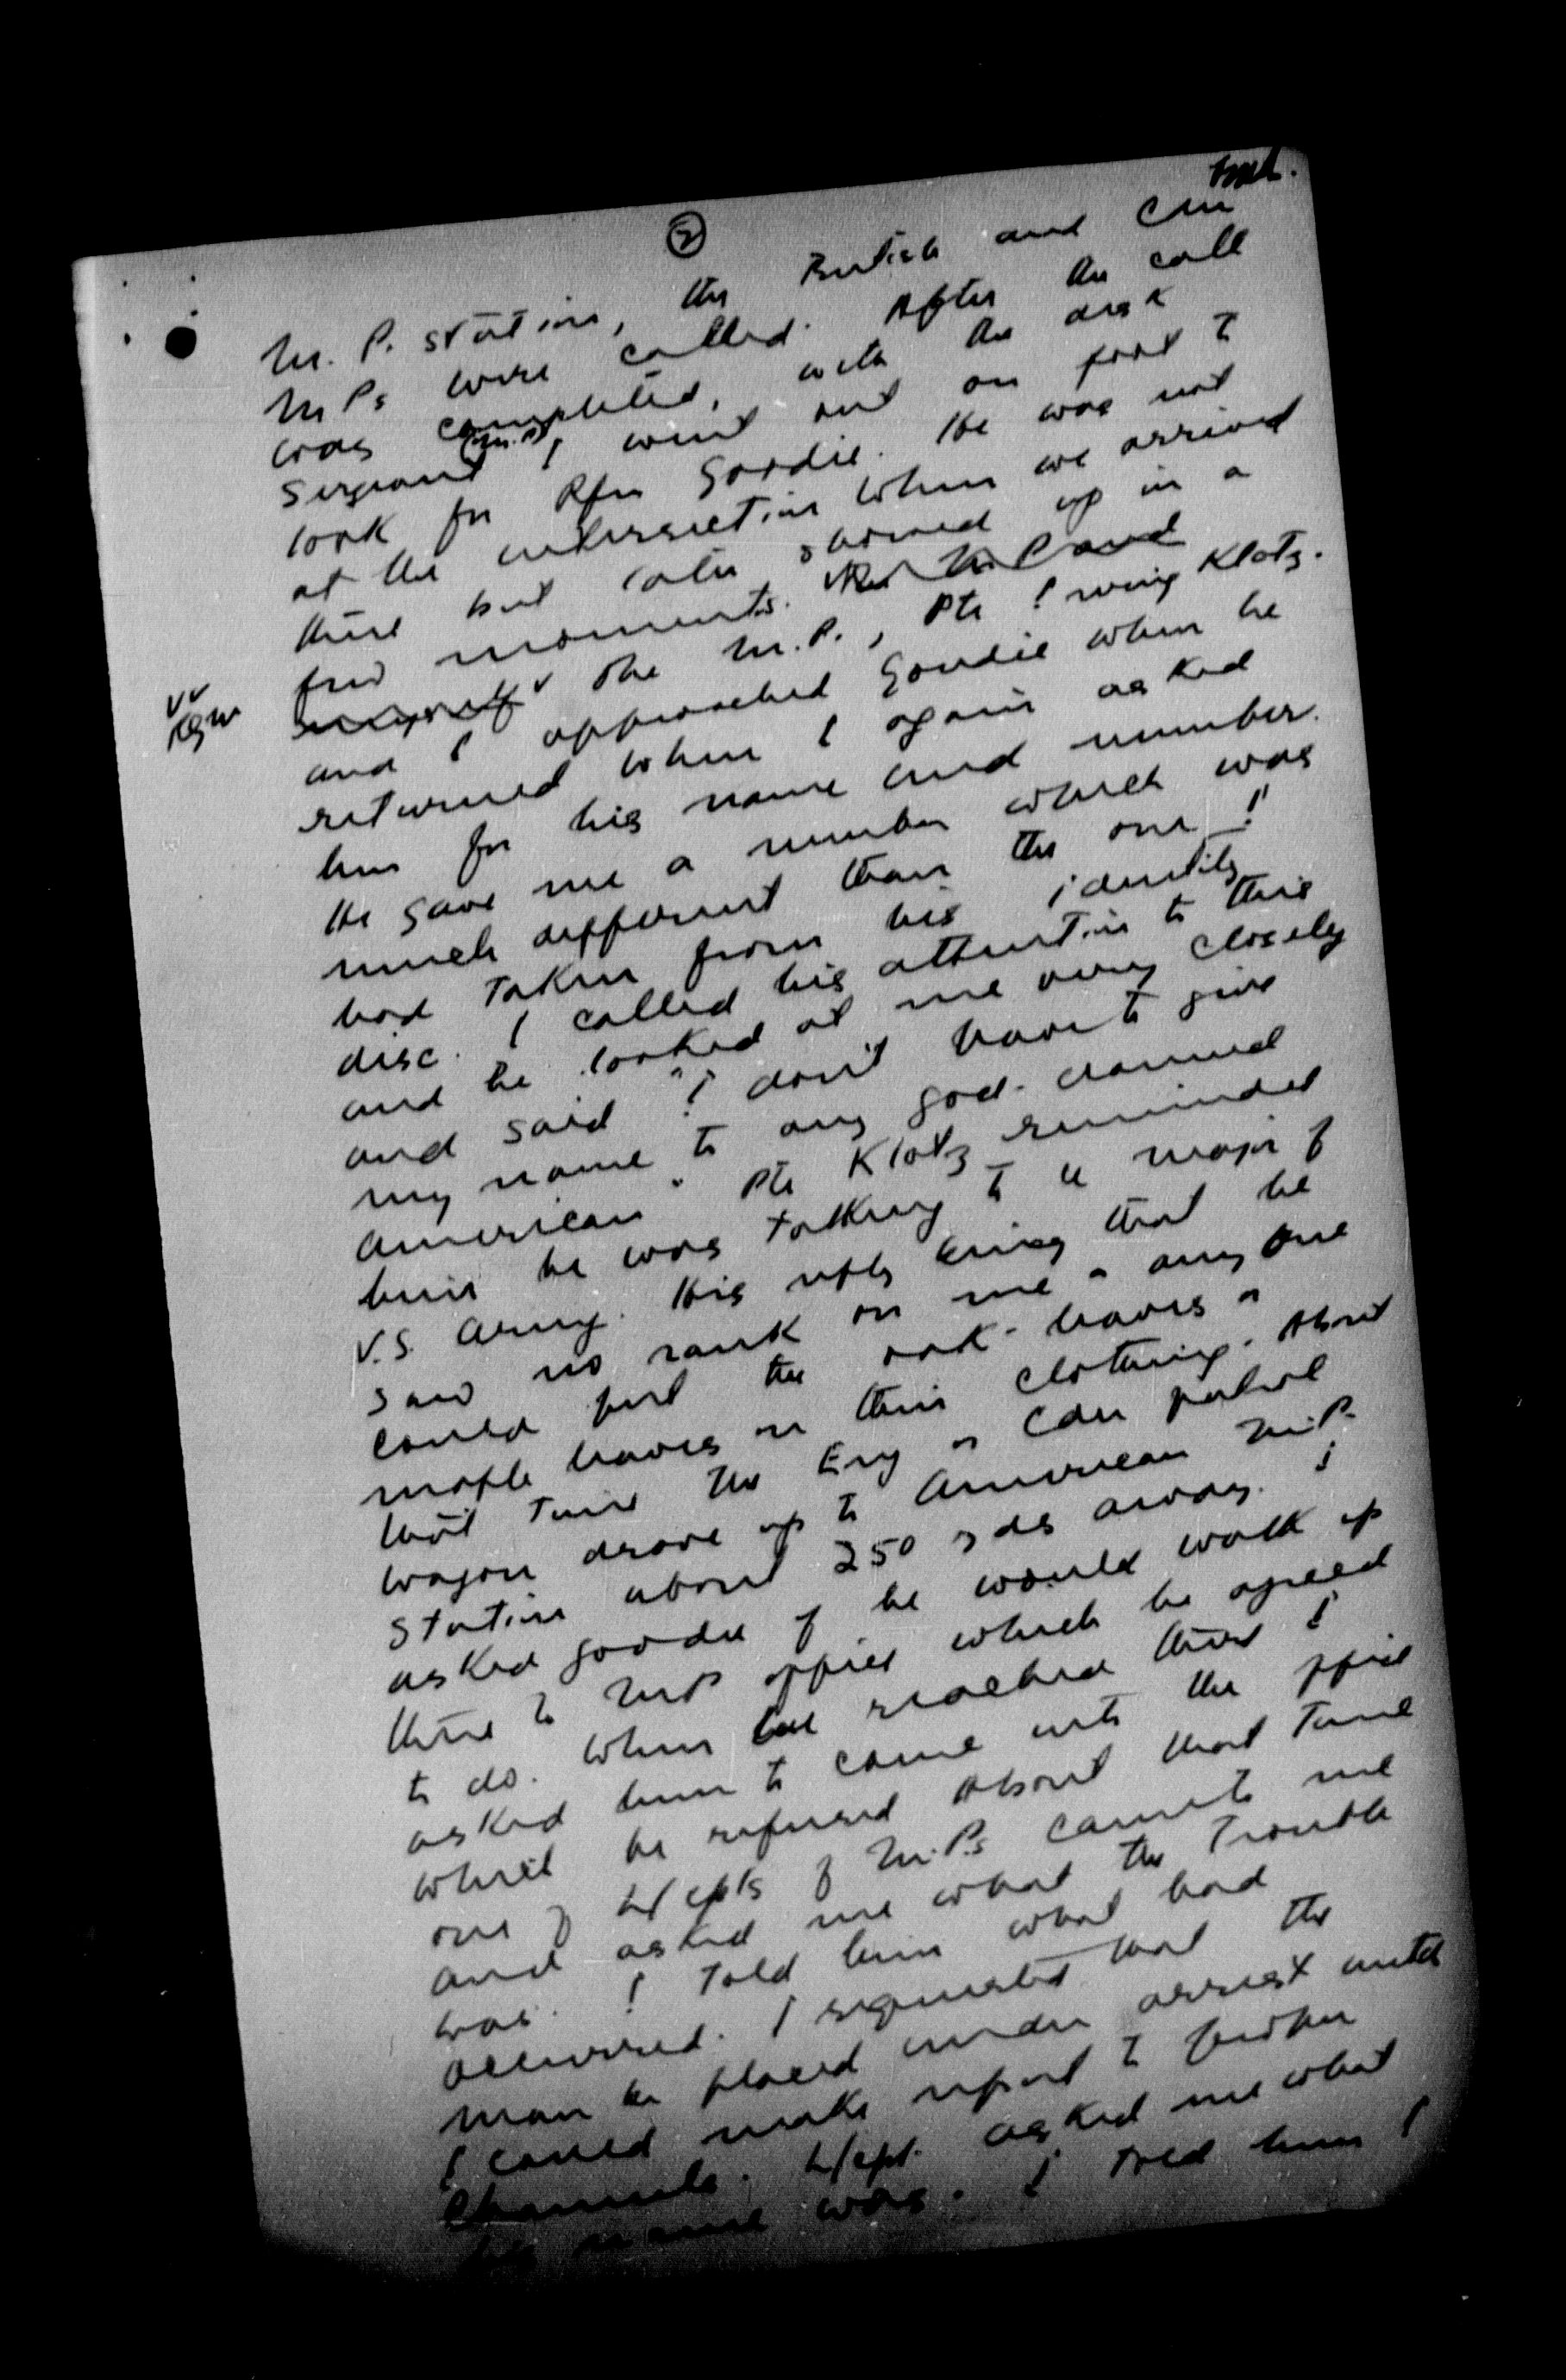 ②
M. P. station, the British and Can
M Ps were called. After the call
was completed, with the desk
Sergeant (M.P), went out on foot to
look for Rfn Goodie. He was not
at the intersection when we arrived
there but later showed up in a
few moments. The M P and
myself The M.P., Pte Irving Klotz.
and I approached Goodie when he
returned when I again asked
him for his name and number.
He gave me a number which was
much different than the one I
had taken from his identity
disc. I called his attention to this
and he looked at me very closely
and said "I don't have to give
my name to any god-damned
American". Pte Klotz reminded
him he was talking to a major of
U.S. Army. His reply being that he
saw no rank on me - any one
could put the oak-leaves or
maple leaves on their clothing. About
that time the Eng or Can patrol
wagon drove up to American M.P.
Station about 250 yds away. I
asked Goodie if he would walk up
there to MP office which he agreed
to do. When we reached there I
asked him to come into the office
which he refused About that time
one of L/Cpls of M.P.s came to me
and asked me what the trouble
was. I told him what had
occurred. I requested that the
man be placed under arrest until
I could make report to further
Channels. L/Cpl. asked me what
name was. I told him I